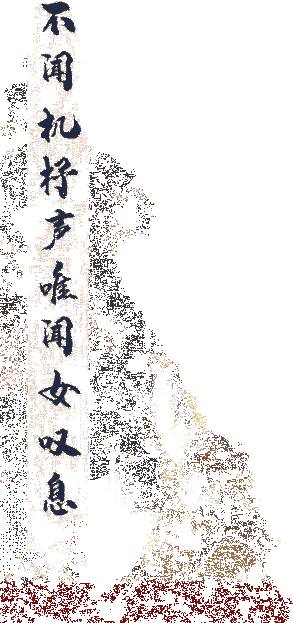 不闻机杼声唯闻女叹息